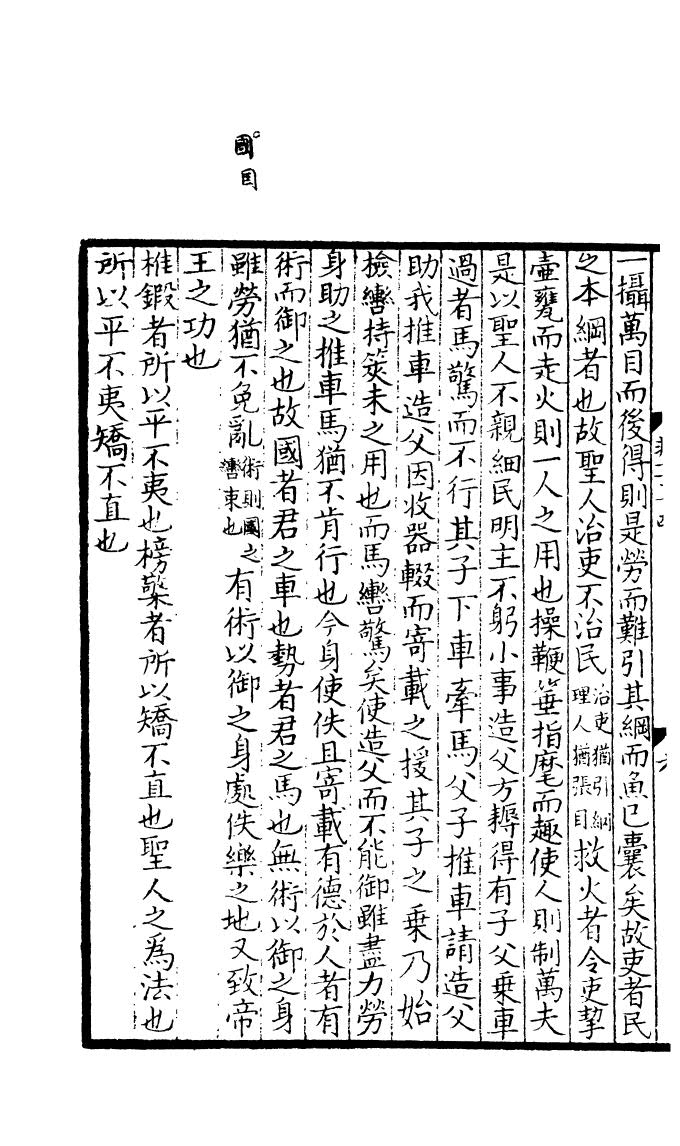 國目
一攝萬目而後得則是勞而難引其綱而魚已囊矣故吏者民
之本綱者也故聖人治吏不治民治吏猶引綱理人猶張目救火者令吏挈
壺甕而走火則一人之用也操鞭箠指麾而趣使人則制萬夫
是以聖人不親細民明主不躬小事造父方耨得有子父乗車
過者馬驚而不行其子下車牽馬父子推車請造父
助我推車造父因收器輟而寄載之援其子之乗乃始
檢轡持筴未之用也而馬轡驚矣使造父而不能御雖盡力勞
身助之推車馬猶不肯行也今身使佚且寄載有德於人者有
術而御之也故國者君之車也勢者君之馬也無術以御之身
雖勞猶不免亂術則國之轡束也有術以御之身處佚樂之地又致帝
王之功也
椎鍛者所以平不夷也榜檠者所以矯不直也聖人之為法也
所以平不夷矯不直也